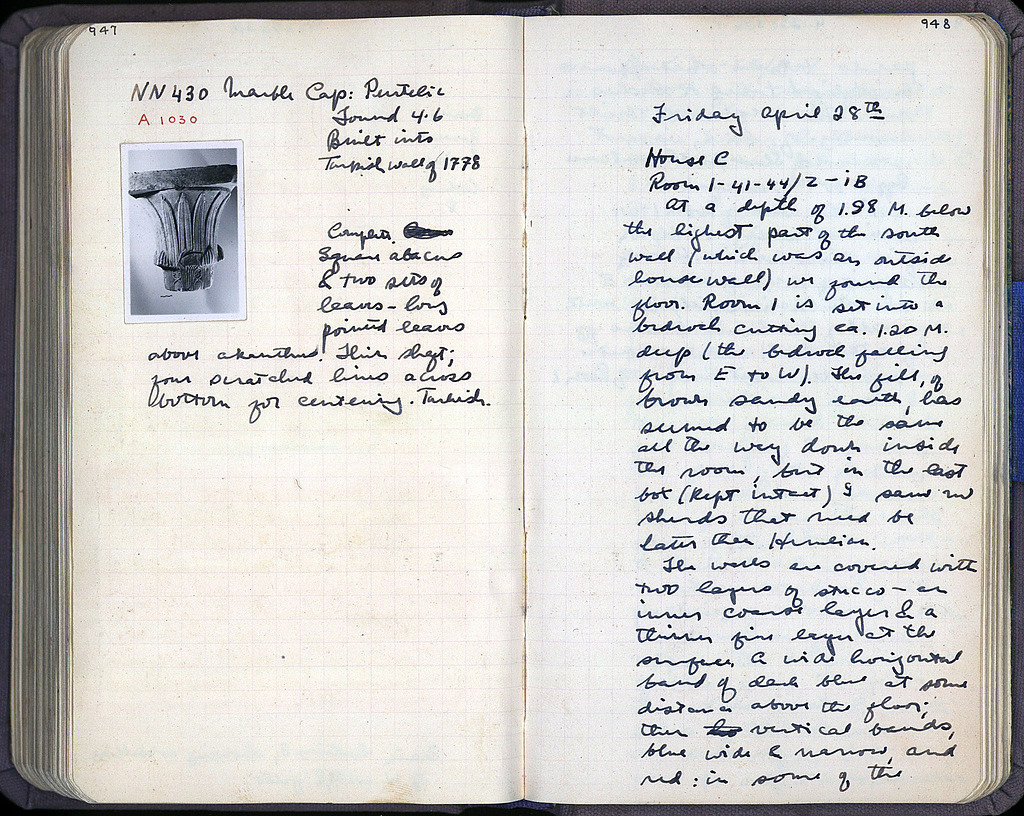 947
NN 430 Marble Cap: Pentelic
A 1030
Found 4.6
Built into
Turkish wall of 1778
Complete.
Square abacus
& two sets of
leaves - long
pointed leaves
above akanthus. Thin shaft;
four scratched lines across
bottom for centering. Turkish.
948
Friday April 28th
House C
Room 1-41-44/Z-iB
At a depth of 1.98 M. below
the highest part of the south
wall (which was an outside
house wall) we found the
floor. Room 1 is set into a
bedrock cutting ca. 1.20 M.
deep (the bedrock falling
from E to W). The fill, of
brown sandy earth, has
seemed to be the same
all the way down inside
the room, but in the last
box (kept intact) I saw no
sherds that need be
later than Herulian.
The walls are covered with
two layers of stucco - an
inner coarse layer & a
thinner fine layer at the
surface. A wide horizontal
band of dark blue at some
distance above the floor;
then vertical bands,
blue wide & narrow, and
red: in some of the